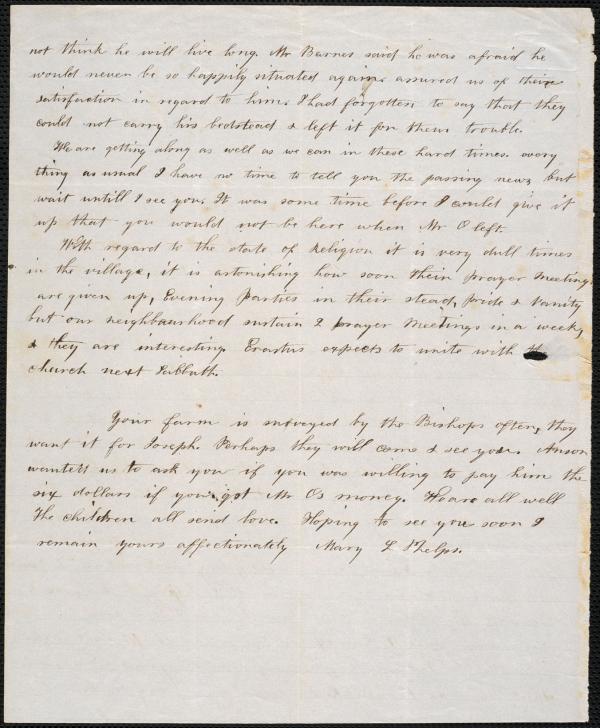 not think he will live long. Mr Barnes said he was afraid he
would never be so happily situated again. assured us of their
satisfaction in regard to him. I had forgotten to say that they
could not carry his bedstead & left it for thems trouble.
We are getting along as well as we can in these hard times. every
thing as usual I have no time to tell you the passing news but
wait untill I see you. It was some time before I could give it
up that you would not be here when Mr O left.
With regard to the state of religion it is very dull times
in the village, it is astonishing how soon their prayer meetings
are given up, Evening Parties in their stead, pride & vanity
but our neighbourhood sustain 2 prayer Meetings in a week,
& they are interesting. Erastus expects to unite with
church next Sabbath.
Your farm is surveyed by the Bishops often, they
want it for Joseph. Perhaps they will come & see you. Anson
wanted us to ask you if you was willing to pay him the
six dollars if you got Mr Os money. We are all well
The children all send love. Hoping to see you soon I
remain yours affectionately Mary L Phelps.